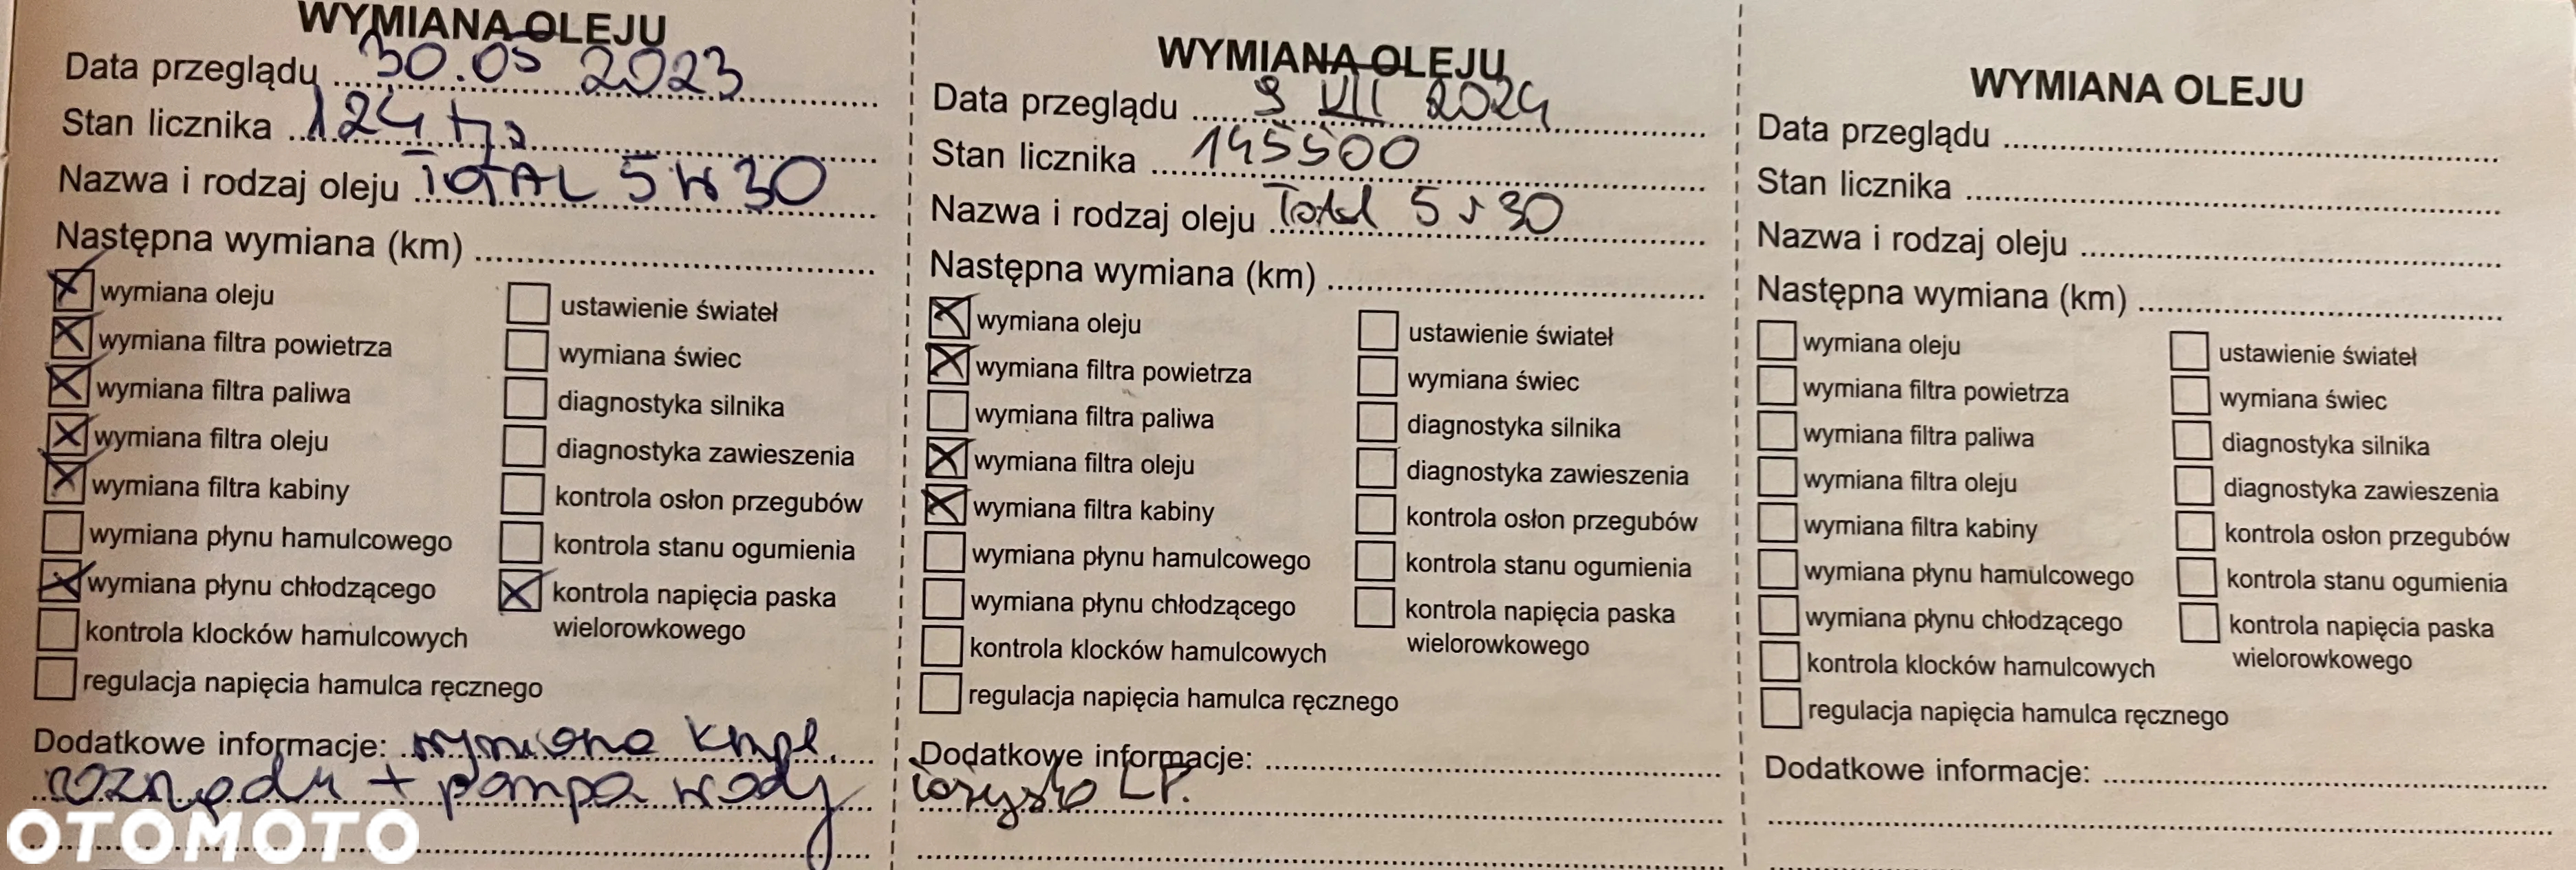 WYMIANA OLEJU
Data przeglądu 30.05 2023
Stan licznika 124 tys
Nazwa i rodzaj oleju TOTAL 5W30
Następna wymiana (km)
wymiana oleju
wymiana filtra powietrza
wymiana filtra paliwa
wymiana filtra oleju
wymiana filtra kabiny
wymiana płynu hamulcowego
wymiana płynu chłodzącego
kontrola klocków hamulcowych
regulacja napięcia hamulca ręcznego
ustawienie świateł
wymiana świec
diagnostyka silnika
diagnostyka zawieszenia
kontrola osłon przegubów
kontrola stanu ogumienia
kontrola napięcia paska
wielorowkowego
Dodatkowe informacje: wymiana kmpl.
rozrządu + pompa wody
OTOMOTO
WYMIANA OLEJU
Data przeglądu 9 VII 2024
Stan licznika 145500
Nazwa i rodzaj oleju Total 5 30
Następna wymiana (km)
wymiana oleju
wymiana filtra powietrza
wymiana filtra paliwa
wymiana filtra oleju
wymiana filtra kabiny
wymiana płynu hamulcowego
wymiana płynu chłodzącego
kontrola klocków hamulcowych
regulacja napięcia hamulca ręcznego
ustawienie świateł
wymiana świec
diagnostyka silnika
diagnostyka zawieszenia
kontrola osłon przegubów
kontrola stanu ogumienia
kontrola napięcia paska
wielorowkowego
Dodatkowe informacje:
łożysko LP.
WYMIANA OLEJU
Data przeglądu
Stan licznika
Nazwa i rodzaj oleju
Następna wymiana (km)
wymiana oleju
wymiana filtra powietrza
wymiana filtra paliwa
wymiana filtra oleju
wymiana filtra kabiny
wymiana płynu hamulcowego
wymiana płynu chłodzącego
kontrola klocków hamulcowych
regulacja napięcia hamulca ręcznego
ustawienie świateł
wymiana świec
diagnostyka silnika
diagnostyka zawieszenia
kontrola osłon przegubów
kontrola stanu ogumienia
kontrola napięcia paska
wielorowkowego
Dodatkowe informacje: